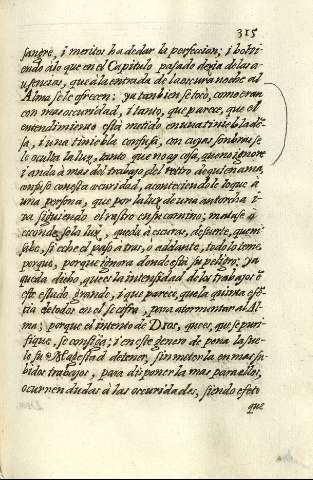 315
sangre, i meritos ha de dar la perfeccion; i bolvi-
endo à lo que en el Capitulo pasado dezia de las a-
usencias, que à la entrada de la oscura noche al
Alma se le ofrecen; ya tanbien se tocò, como eran
con mas oscuridad, i tanto, que parece, que el
entendimiento està metido en una tiniebla de-
sa, i una tiniebla confusa, con cuyas sonbras se
le oculta la luz, tanto, que no ay cosa, que no ignore
i anda à mas del trabajo del retiro de quien ama,
confuso con esta oscuridad, aconteciendole lo que à
una persona, que por la luz de una antorcha i-
va siguiendo el rastro en su camino; matase ò
esconde se la luz, queda à escuras, de suerte, que ni
sabe, si eche el paso atras, o adelante, todo lo teme,
porque, porque ignora donde està su peligro; ya
queda dicho, que es la intensidad de los trabajos i
este estudo grande, i que parece, que la quinta esē-
tia de todos en el se cifra, para atormentar al Al-
ma; porque el intento de Dios, que es, que se puri-
fique, se consiga; i en este genero de pena la sue-
le su Magestad detener, sin meterla en mas su-
bidos trabajos, para disponer la mas para ellos,
ocurren dudas à las oscuridades, siendo efeto
que